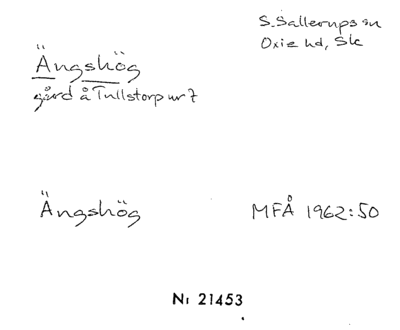 S. Sallerups sn
Oxie hd, Sk
Ängshög
gård å Tullstorp nr 7
Ängshög MFÅ 1962:50
Nr 21453